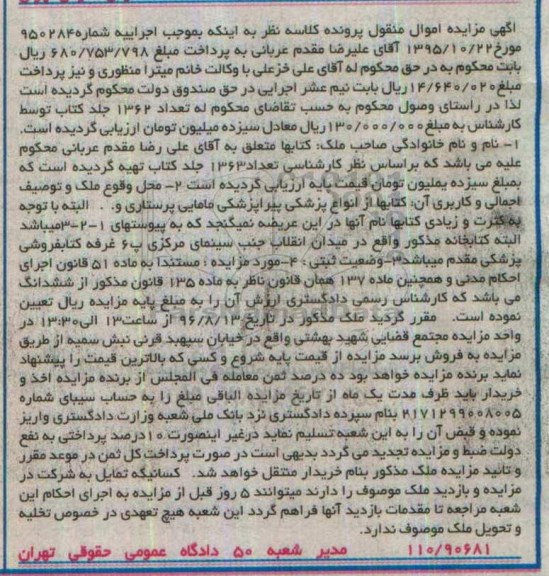 آگهی مزایده اموال منقول پرونده کلاسه نظر به اینکه بموجب اجراییه شماره۹۵۰۲۸۴
مورخ۱۳۹۵/۱۰/۲۲ آقای علیرضا مقدم عربانی به پرداخت مبلغ ۶۸۰/۷۵۳/۷۹۸ ریال
بابت محکوم به در حق محکوم له آقای علی خزعلی با وکالت خانم میترا منظوری و نیز پرداخت
مبلغ۱۴/۶۴۰/۰۲۰ریال بابت نیم عشر اجرایی در حق صندوق دولت محکوم گردیده است
لذا در راستای وصول محکوم به حسب تقاضای محکوم له تعداد ۱۳۶۲ جلد کتاب توسط
کارشناس به مبلغ۱۳۰/۰۰۰/۰۰۰ریال معادل سیزده میلیون تومان ارزیابی گردیده است.
۱- نام و نام خانوادگی صاحب ملک: کتابها متعلق به آقای علی رضا مقدم عربانی محکوم
علیه می باشد که براساس نظر کارشناسی تعداد۱۳۶۳ جلد کتاب تهیه گردیده است که
بمبلغ سیزده یملیون تومان قیمت پایه ارزیابی گردیده است ۲- محل وقوع ملک و توصیف
اجمالی و کاربری آن: کتابها از انواع پزشکی پیراپزشکی مامایی پرستاری و. . البته با توجه
به کثرت و زیادی کتابها نام آنها در این عریضه نمیگنجد که به پیوستهای ۱-۲-۳میباشد
البته کتابخانه مذکور واقع در میدان انقلاب جنب سینمای مرکزی پ۶ غرفه کتابفروشی
پزشکی مقدم میباشد۳-وضعیت ثبتی: ۴-مورد مزایده : مستندا به ماده ۵۱ قانون اجرای
احکام مدنی و همچنین ماده ۱۳۷ همان قانون ناظر به ماده ۱۳۵ قانون مذکور از ششدانگ
می باشد که کارشناس رسمی دادگستری ارزش آن را به مبلغ پایه مزایده ریال تعیین
نموده است. مقرر گردید ملک مذکور در تاریخ ۹۶/۸/۱۳ از ساعت۱۳ الی۱۳:۳۰ در
واحد مزایده مجتمع قضایی شهید بهشتی واقع در خیابان سپهبد قرنی نبش سمیه از طریق
مزایده به فروش برسد مزایده از قیمت پایه شروع و کسی که بالاترین قیمت را پیشنهاد
نماید برنده مزایده خواهد بود ده درصد ثمن معامله فی المجلس از برنده مزایده اخذ و
خریدار باید ظرف مدت یک ماه از تاریخ مزایده الباقی مبلغ را به حساب سیبای شماره
۲۱۷۱۲۹۹۰۰۸۰۰۵ بنام سپرده دادگستری نزد بانک ملی شعبه وزارت دادگستری واریز
نموده و قبض آن را به این شعبه تسلیم نماید درغیر اینصورت ۱۰درصد پرداختی به نفع
دولت ضبط و مزایده تجدید می گردد بدیهی است در صورت پرداخت کل ثمن در موعد مقرر
و تائید مزایده ملک مذکور بنام خریدار منتقل خواهد شد. کسانیکه تمایل به شرکت در
مزایده و بازدید ملک موصوف را دارند میتوانند ۵ روز قبل از مزایده به اجرای احکام این
شعبه مراجعه تا مقدمات بازدید آنها فراهم گردد این شعبه هیچ تعهدی در خصوص تخلیه
و تحویل ملک موصوف ندارد.
۱۱۰/۹۰۶۸۱ مدیر شعبه ۵۰ دادگاه عمومی حقوقی تهران